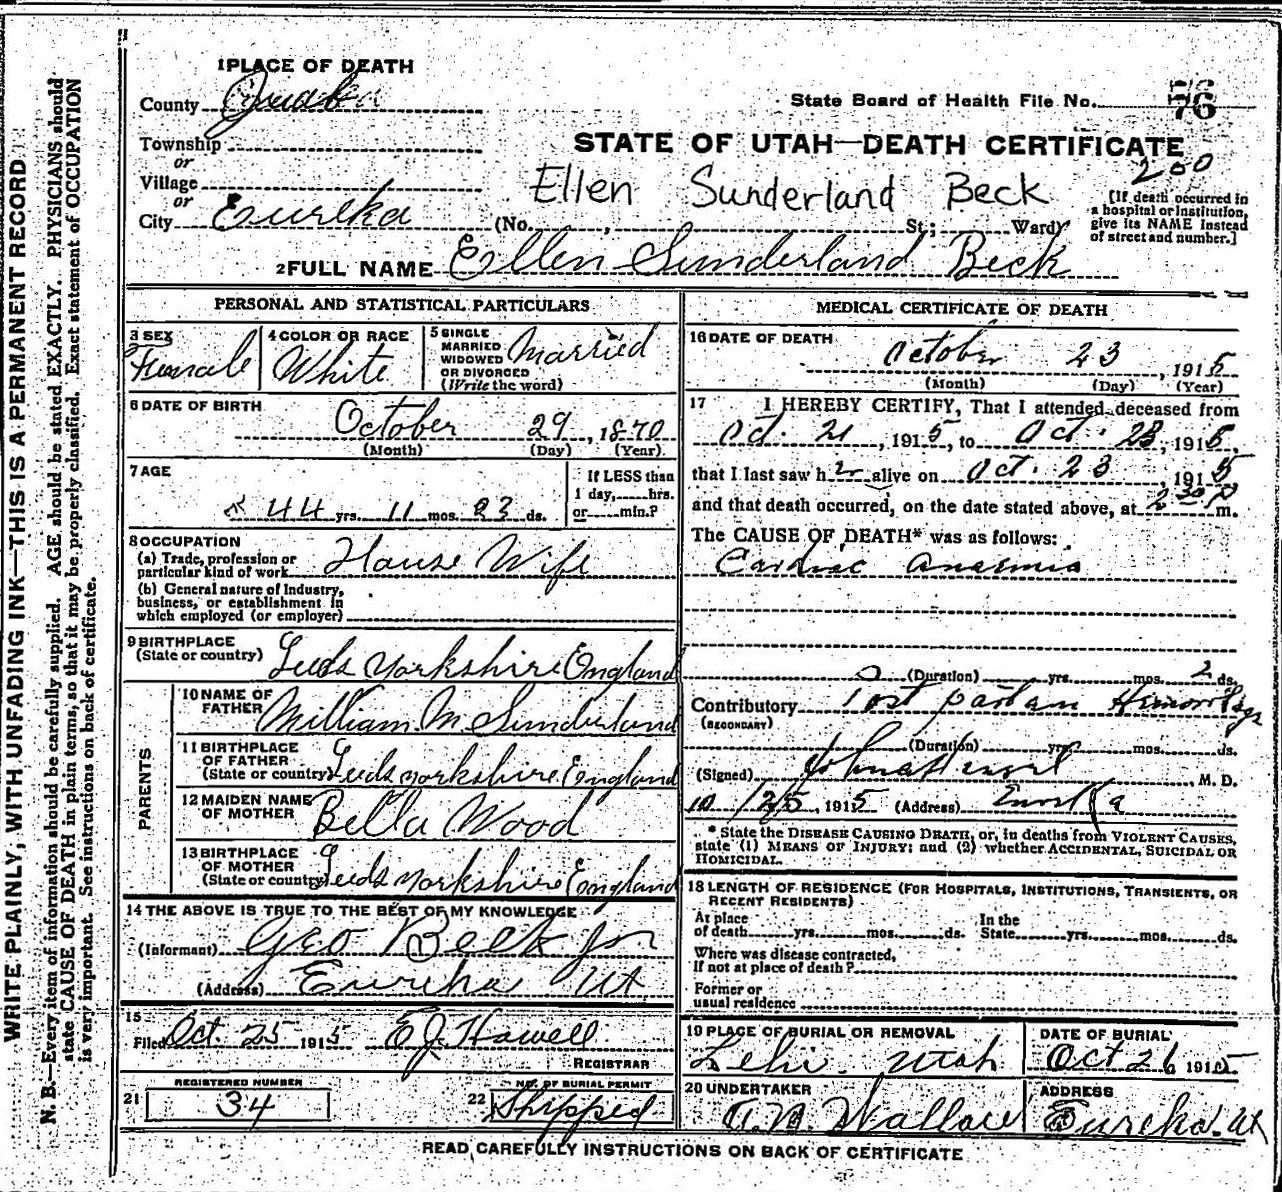 1 PLACE OF DEATH
County
State Board of Health File No. 76
Township
or
Village
or
City Eureka
STATE OF UTAH—DEATH CERTIFICATE
200
Ellen Sunderland Beck
(No. , St.; Ward)
[If death occurred in
a hospital or institution,
give its NAME instead
of street and number.]
2 FULL NAME Ellen Sunderland Beck
PERSONAL AND STATISTICAL PARTICULARS
3 SEX
Female
4 COLOR OR RACE
White
5 SINGLE
MARRIED
WIDOWED
OR DIVORCED
(Write the word)
Married
6 DATE OF BIRTH
October 29, 1870
(Month) (Day) (Year)
7 AGE
44 yrs. 11 mos. 23 ds.
If LESS than
1 day, hrs.
or min.?
8 OCCUPATION
(a) Trade, profession or
particular kind of work House Wife
(b) General nature of industry,
business, or establishment in
which employed (or employer)
9 BIRTHPLACE
(State or country) Leeds Yorkshire England
PARENTS
10 NAME OF
FATHER William M Sunderland
11 BIRTHPLACE
OF FATHER
(State or country) Leeds Yorkshire England
12 MAIDEN NAME
OF MOTHER Bella Wood
13 BIRTHPLACE
OF MOTHER
(State or country) Leeds Yorkshire England
14 THE ABOVE IS TRUE TO THE BEST OF MY KNOWLEDGE
(Informant) Geo Beck Jr
(Address) Eureka Ut
15
Filed Oct. 25 1915 E.J. Howell
REGISTRAR
REGISTERED NUMBER
21 34
NO. OF BURIAL PERMIT
22 Shipped
MEDICAL CERTIFICATE OF DEATH
16 DATE OF DEATH
October 23, 1915
(Month) (Day) (Year)
17 I HEREBY CERTIFY, That I attended deceased from
Oct. 21, 1915, to Oct. 23, 1915,
that I last saw her alive on Oct. 23, 1915
and that death occurred, on the date stated above, at 2 30 P m.
The CAUSE OF DEATH* was as follows:
Cardiac Anaemia
(Duration) yrs. mos. 2 ds.
Contributory Post partum Hemorrhage
(SECONDARY)
(Duration) yrs. mos. ds.
(Signed) M. D.
10/25, 1915 (Address) Eureka
* State the DISEASE CAUSING DEATH, or, in deaths from VIOLENT CAUSES,
state (1) MEANS OF INJURY; and (2) whether ACCIDENTAL, SUICIDAL OR
HOMICIDAL.
18 LENGTH OF RESIDENCE (FOR HOSPITALS, INSTITUTIONS, TRANSIENTS, OR
RECENT RESIDENTS)
At place
of death yrs. mos. ds.
In the
State yrs. mos. ds.
Where was disease contracted,
if not at place of death?
Former or
usual residence
19 PLACE OF BURIAL OR REMOVAL
Lehi Utah
DATE OF BURIAL
Oct 26 1915
20 UNDERTAKER
A.N. Wallace
ADDRESS
Eureka. Ut
READ CAREFULLY INSTRUCTIONS ON BACK OF CERTIFICATE
WRITE PLAINLY, WITH UNFADING INK—THIS IS A PERMANENT RECORD
N. B.—Every item of information should be carefully supplied. AGE should be stated EXACTLY. PHYSICIANS should
state CAUSE OF DEATH in plain terms, so that it may be properly classified. Exact statement of OCCUPATION
is very important. See instructions on back of certificate.